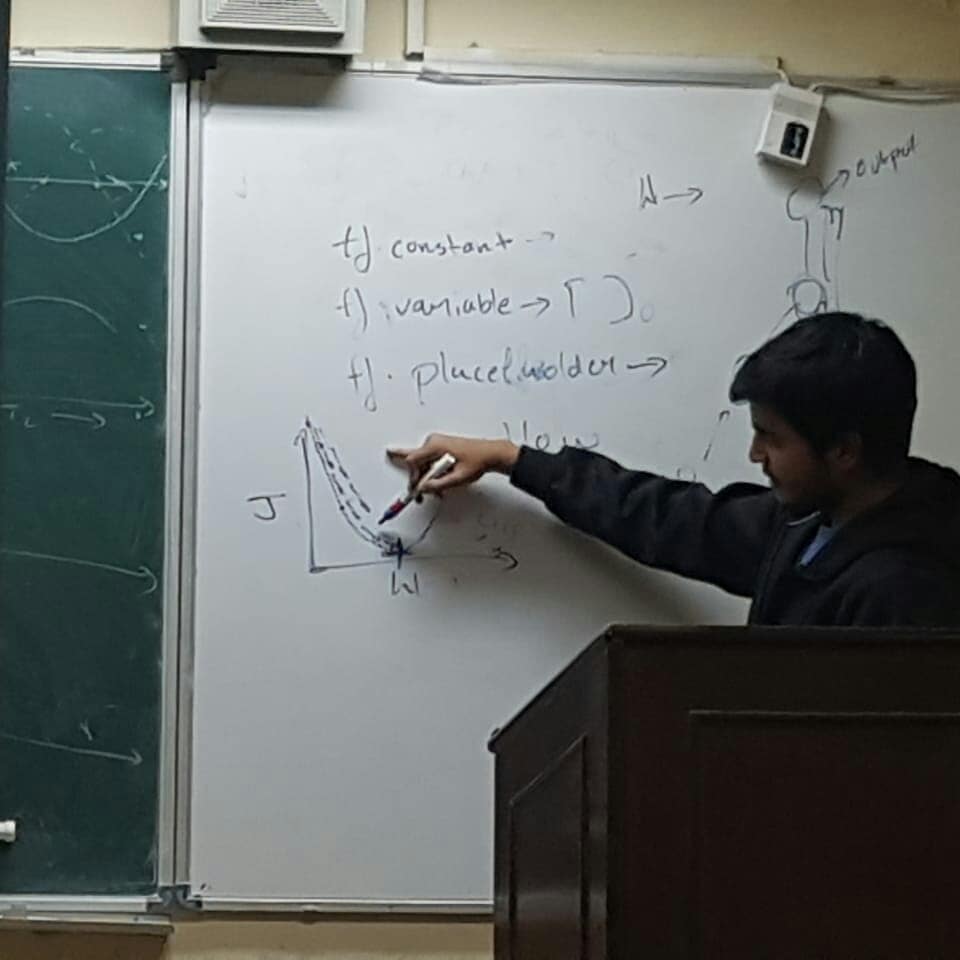 W →
output
tf. constant →
tf. variable → [ ].
tf. placeholder →
J
W